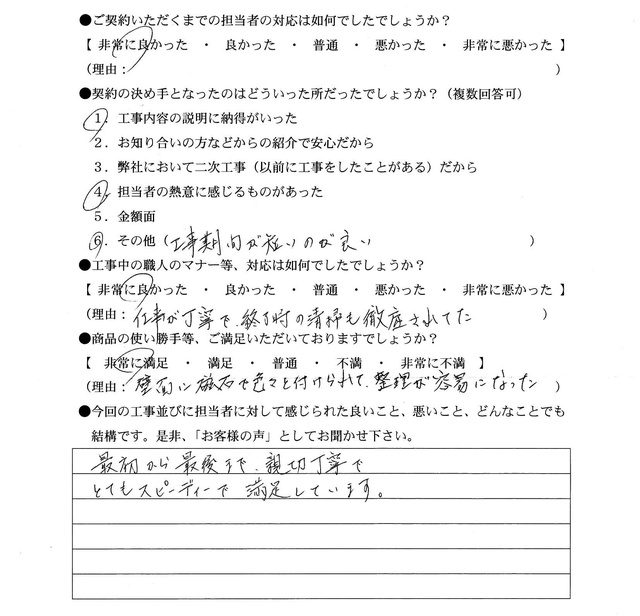 ●ご契約いただくまでの担当者の対応は如何でしたでしょうか？
【 非常に良かった ・ 良かった ・ 普通 ・ 悪かった ・ 非常に悪かった 】
（理由： ）
●契約の決め手となったのはどういった所だったでしょうか？（複数回答可）
１．工事内容の説明に納得がいった
２．お知り合いの方などからの紹介で安心だから
３．弊社において二次工事（以前に工事をしたことがある）だから
４．担当者の熱意に感じるものがあった
５．金額面
６．その他（工事期間が短いのが良い ）
●工事中の職人のマナー等、対応は如何でしたでしょうか？
【 非常に良かった ・ 良かった ・ 普通 ・ 悪かった ・ 非常に悪かった 】
（理由：仕事が丁寧で、終了時の清掃も徹底されてた ）
●商品の使い勝手等、ご満足いただいておりますでしょうか？
【 非常に満足 ・ 満足 ・ 普通 ・ 不満 ・ 非常に不満 】
（理由：壁面に磁石で色々と付けられて、整理が容易になった ）
●今回の工事並びに担当者に対して感じられた良いこと、悪いこと、どんなことでも
結構です。是非、「お客様の声」としてお聞かせ下さい。
最初から最後まで、親切丁寧で
とてもスピーディーで 満足しています。